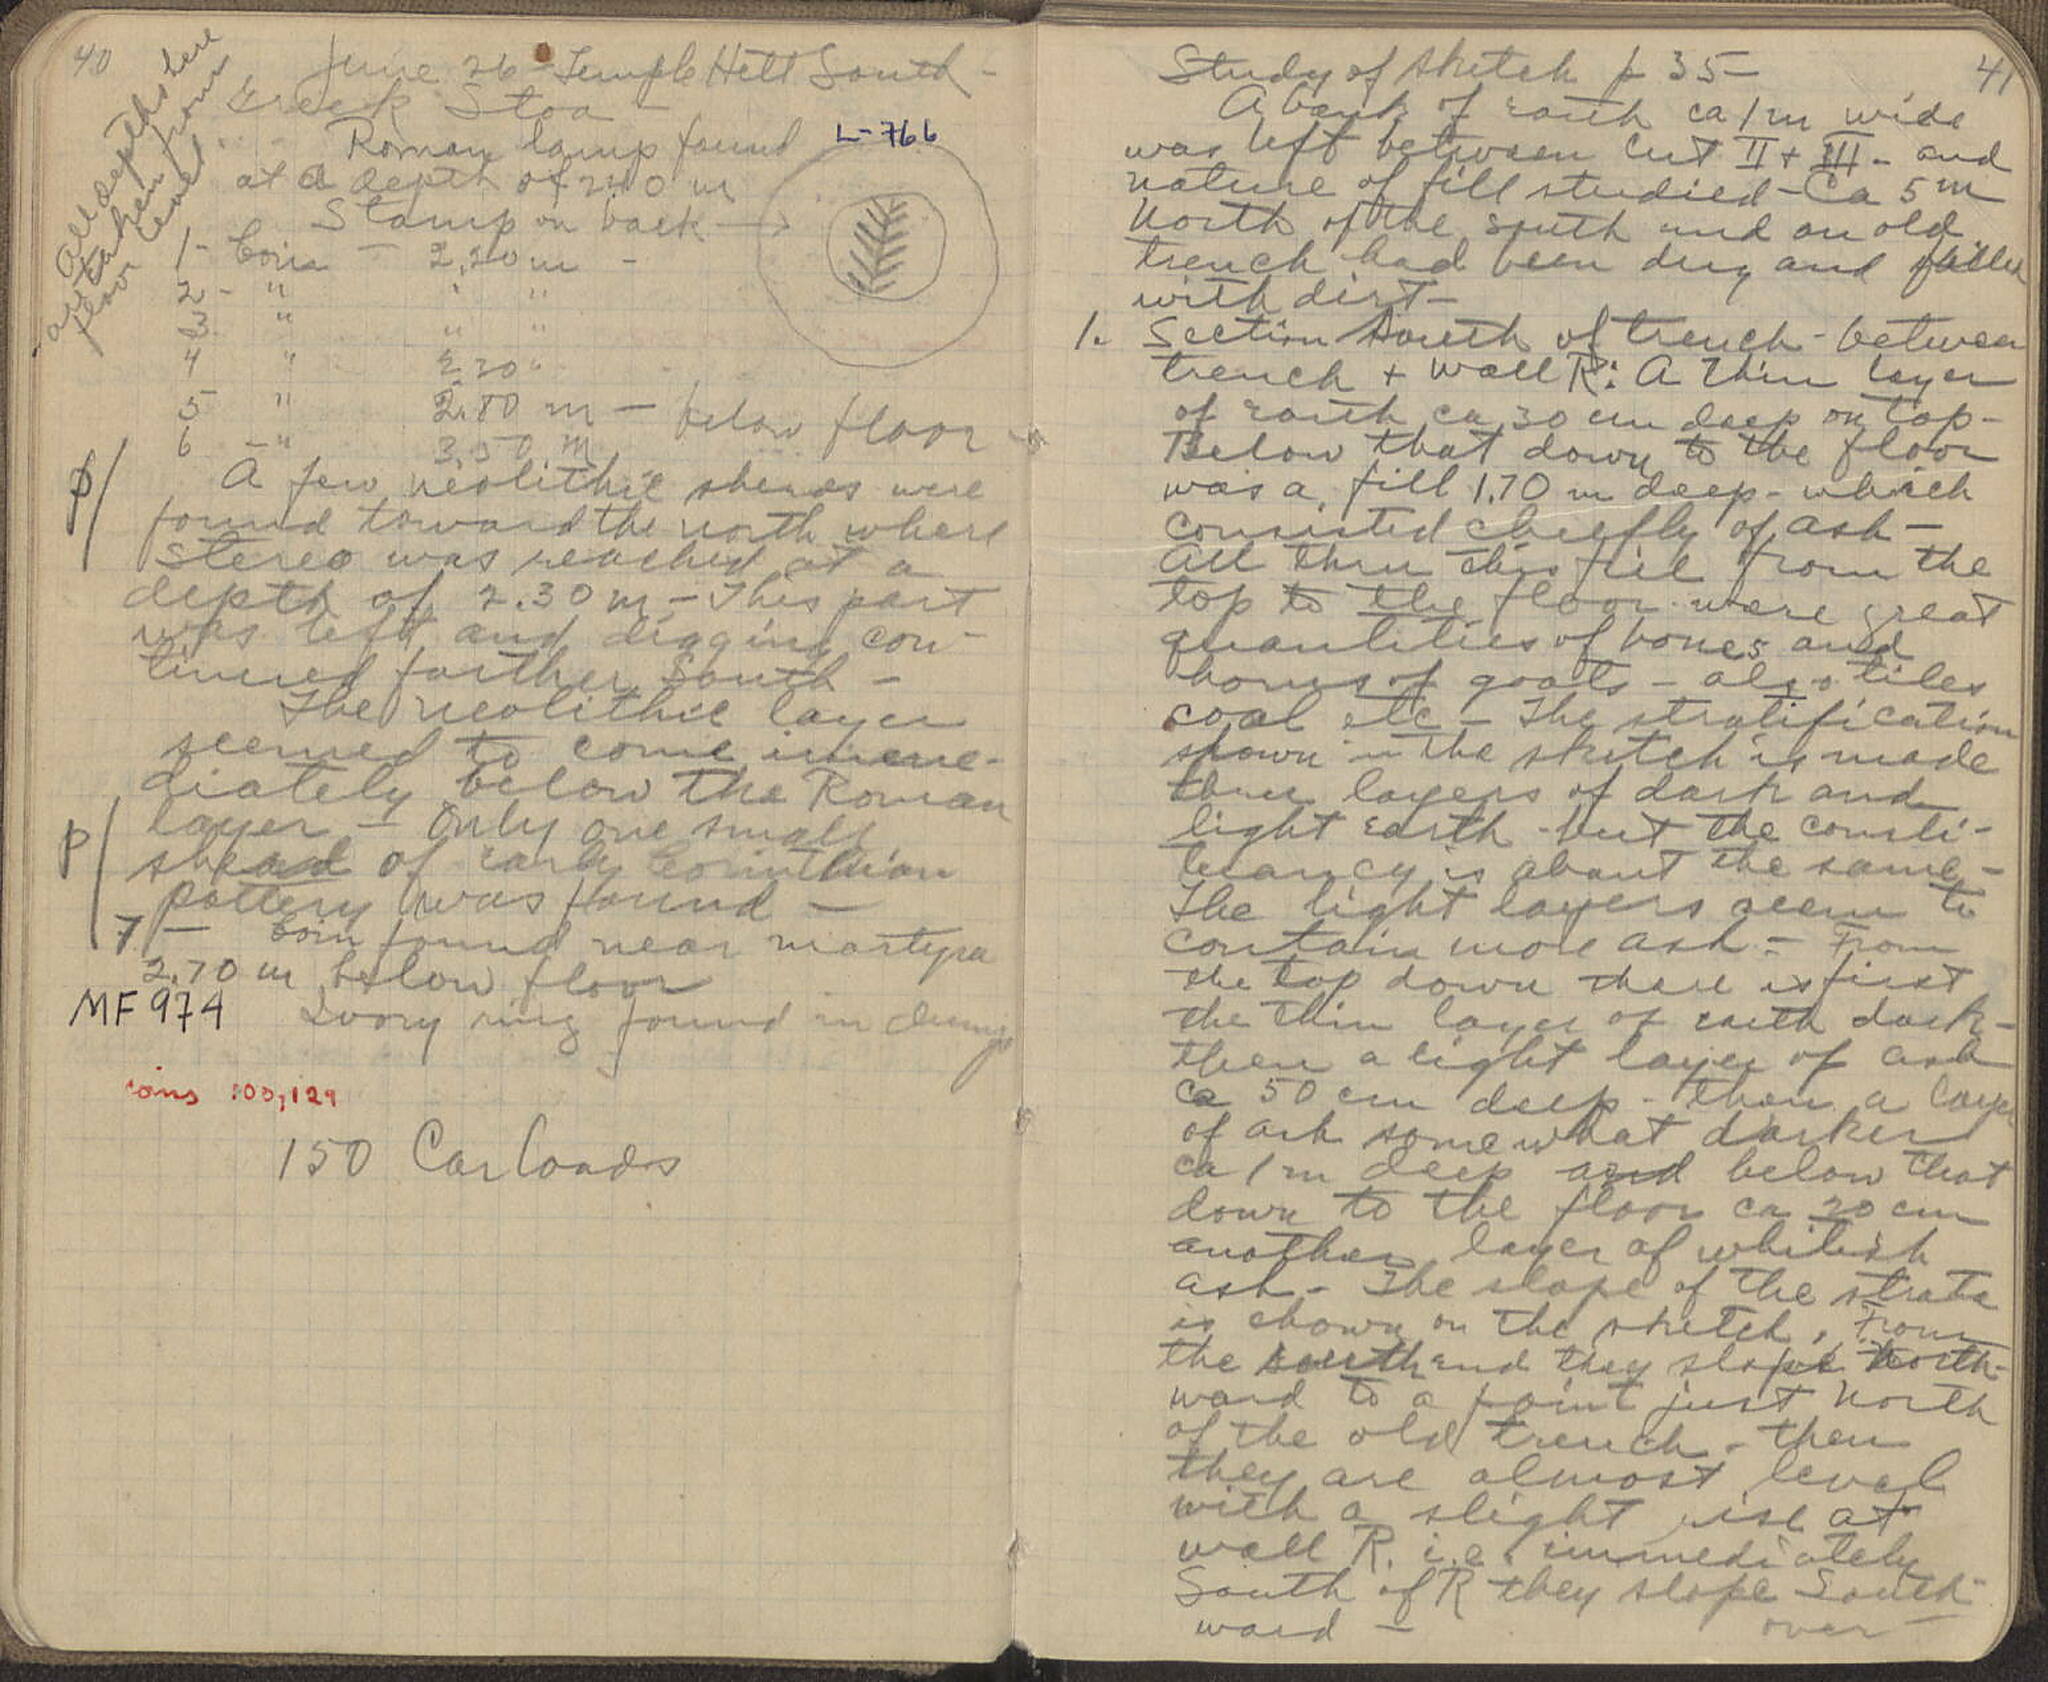 40
All depths here
are taken from
floor level
June 26 - Temple Hill South -
Greek Stoa -
Roman lamp found
L-766
at a depth of 2.40 m
Stamp on back →
1 - Coin - 2.20 m -
2 - " " "
3 " " "
4 " 2.20 "
5 " 2.80 m - below floor -
6 - " 3.50 m
P/
A few neolithic sherds were
found toward the north where
stereo was reached at a
depth of 2.30 m - This part
was left and digging con-
tinued further South -
The neolithic layer
seemed to come imme-
diately below the Roman
P/
layer - Only one small
sherd of early Corinthian
pottery was found -
7 - Coin found near martyra
2.70 m below floor
MF 974 Ivory ring found in dump
coins 100,129
150 Carloads
41
Study of sketch p 35 -
A bank of earth ca 1 m wide
was left between Cut II + III - and
nature of fill studied - Ca 5 m
North of the south end an old
trench had been dug and filled
with dirt -
1. Section South of trench - between
trench + wall R: A thin layer
of earth ca 30 cm deep on top -
Below that down to the floor
was a fill 1.70 m deep - which
consisted chiefly of ash -
All thru this fill from the
top to the floor were great
quantities of bones and
horns of goats - also tiles
coal etc - The stratification
shown in the sketch is made
thru layers of dark and
light earth - but the consti-
tuancy is about the same -
The light layers seem to
contain more ash - From
the top down there is first
the thin layer of earth dark -
then a light layer of ash
ca 50 cm deep - then a layer
of ash somewhat darker
ca 1 m deep and below that
down to the floor ca 20 cm
another layer of whitish
ash - The slope of the strata
is shown on the sketch. From
the south end they slope North-
ward to a point just North
of the old trench - then
they are almost level
with a slight rise at
wall R. i.e. immediately
South of R they slope South-
ward - over -